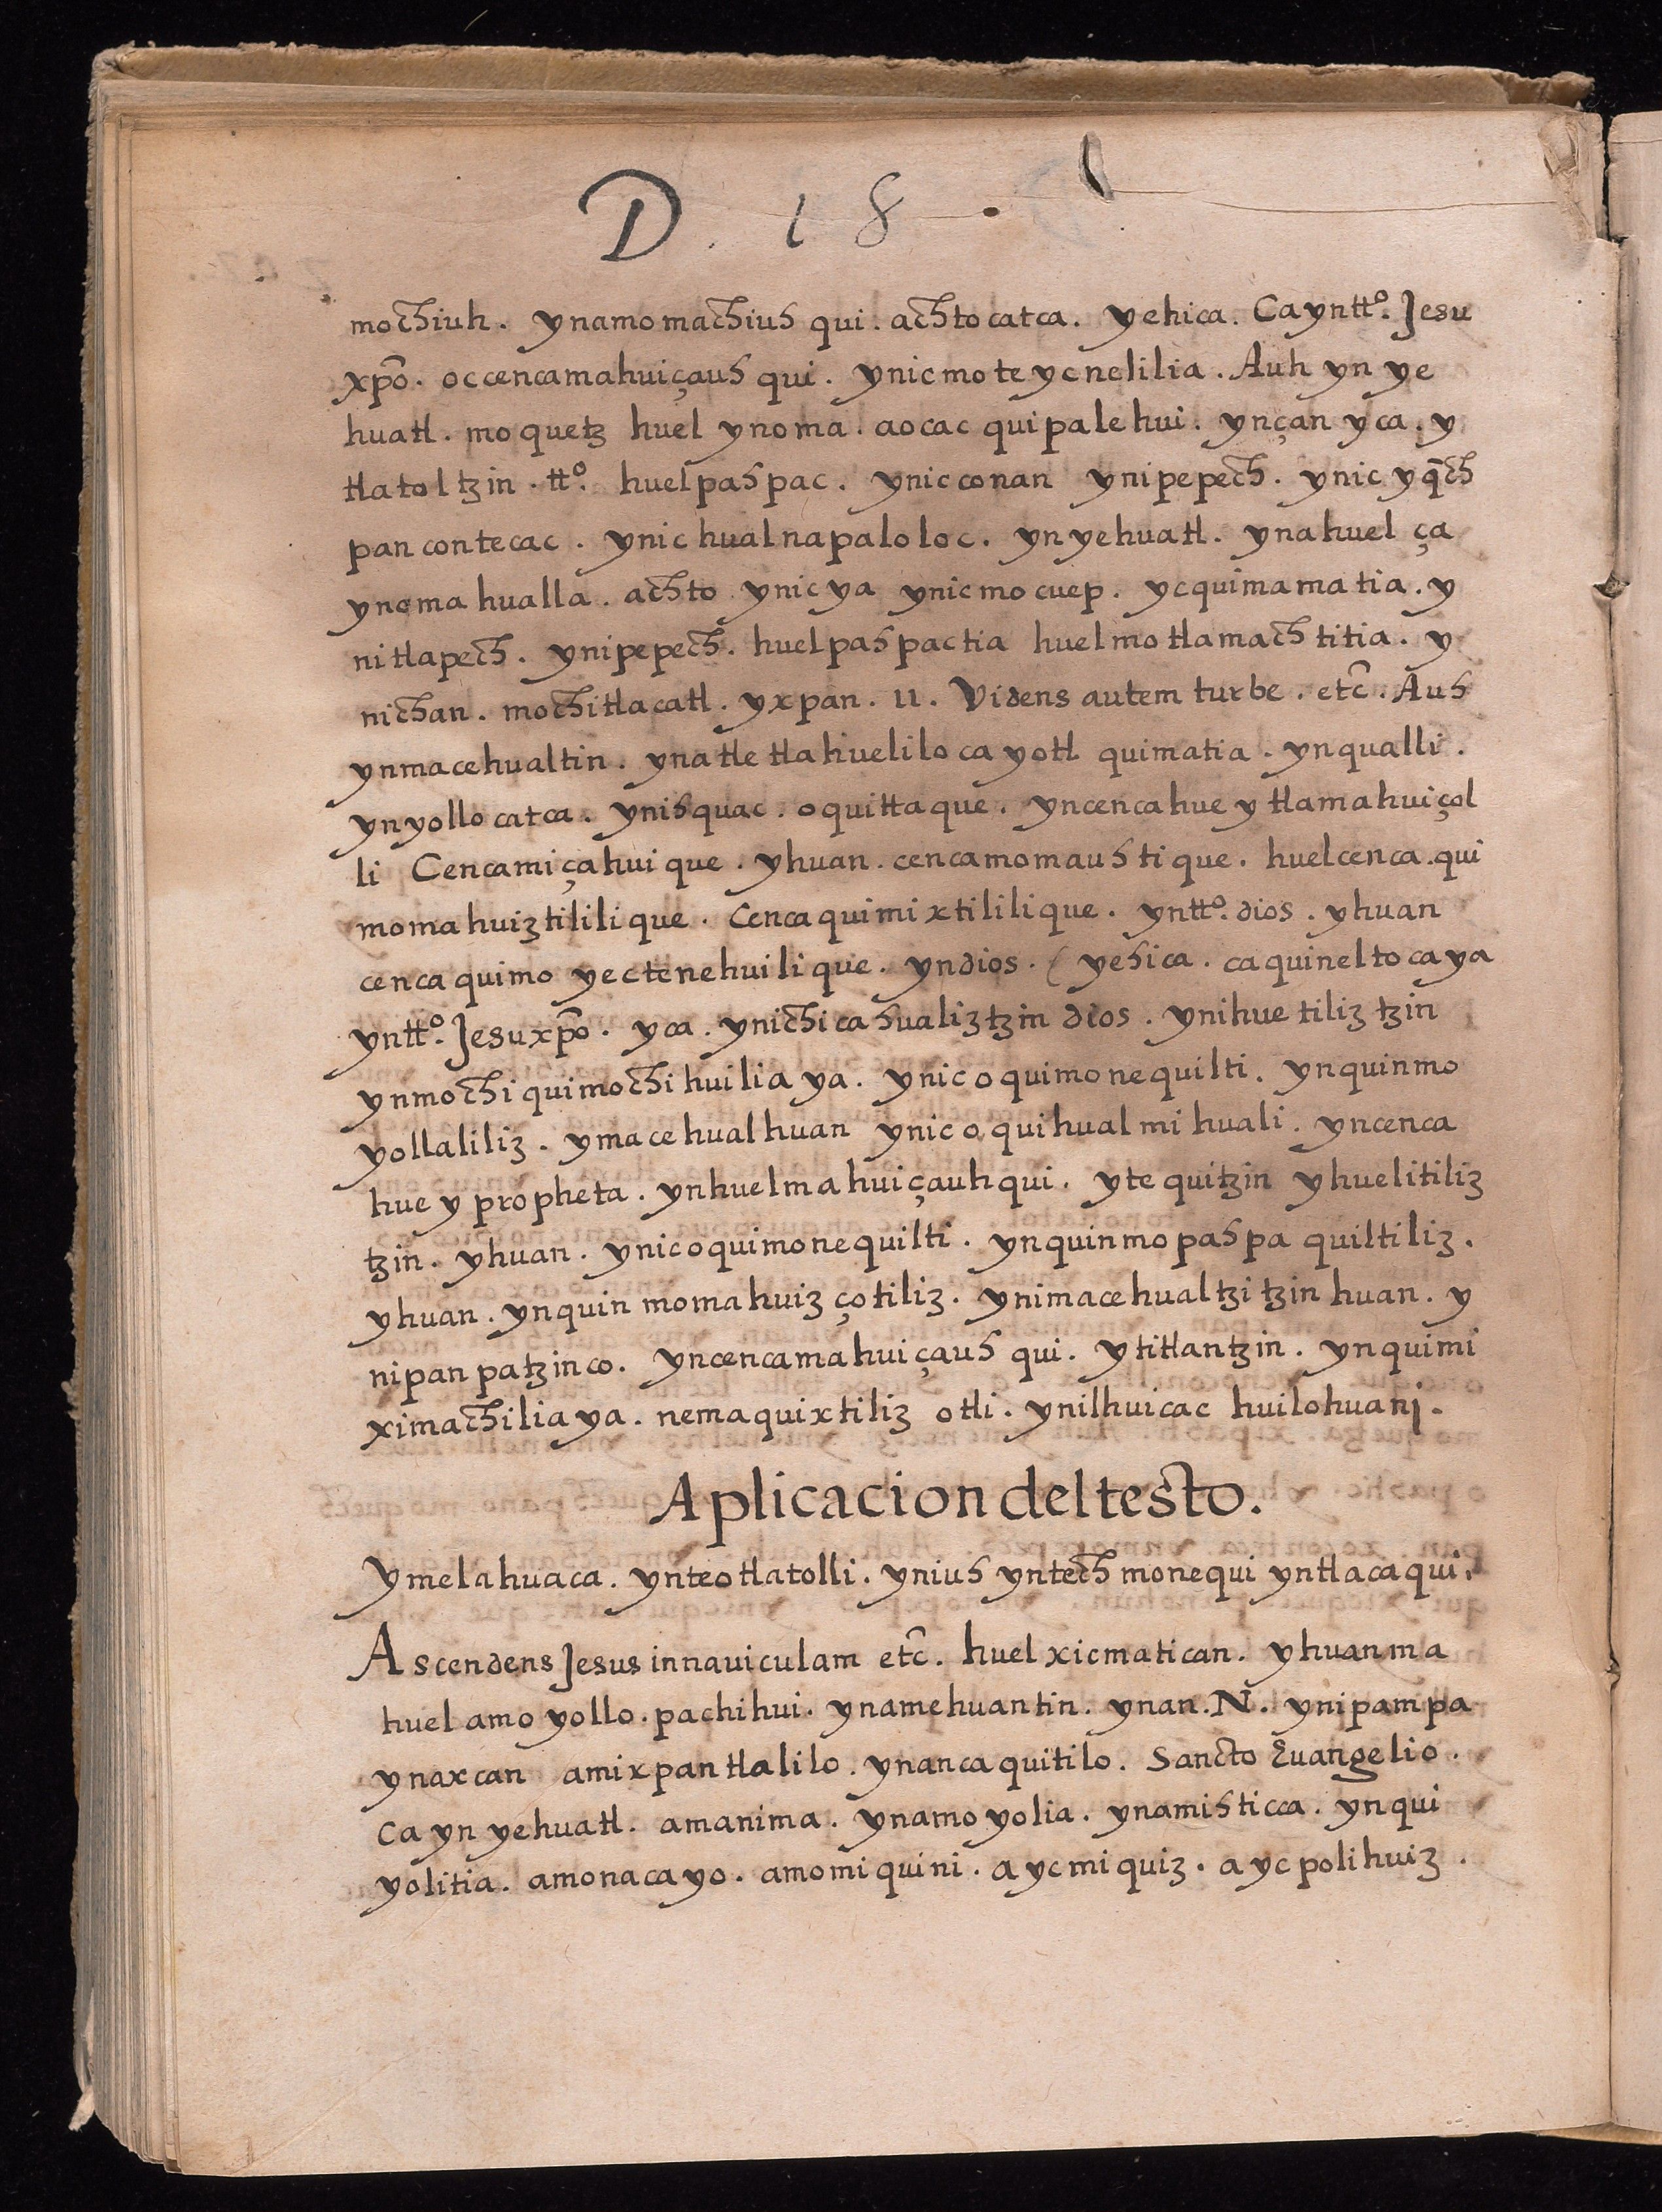 D. 18.
mochiuh. ynamo machiuh qui. achto catca. yehica. Ca yntto. Jesu
xpo. occenca mahuiçauh qui. ynic mo te ycnelilia. Auh yn ye
huatl. mo quetz huel ynoma. aocac quipalehui. ynçan yca. y
tlatoltzin. tto. huel pahpac. ynic conan ynipepech. ynic yqch
pan contecac. ynic hualnapaloloc. yn yehuatl. ynahuel ça
ynoma hualla. achto ynic ya ynic mo cuep. ycquimama tia. y
nitlapech. ynipepech. huel pahpactia huel motlamachtitia. y
nichan. mochitlacatl. yxpan. 11. Videns autem turbe. etc. Auh
ynmacehualtin. ynatle tlahuelilo ca yotl quimatia. ynqualli.
ynyollo catca. ynihquac. oquittaque. yncenca hue y tlamahuiçol
li Cenca miçahui que. yhuan. cenca momauhtique. huel cenca. qui
momahuiztililique. Cenca quimixtililique. yntto. dios. yhuan
cenca quimo yectenehuilique. yn dios. ( yehica. ca quineltocaya
yntto. Jesuxpo. yca. ynichicahualiztzin dios. ynihuetiliztzin
ynmochi quimochihuiliaya. ynic oquimonequilti. ynquinmo
yollaliliz. ymacehualhuan ynic oquihualmihuali. yncenca
hue y propheta. ynhuelmahuiçauhqui. ytequitzin yhuelitiliz
tzin. yhuan. ynic oquimonequilti. ynquinmopahpaquiltiliz.
yhuan. ynquin momahuizçotiliz. ynimacehualtzitzin huan. y
nipan patzinco. yncenca mahuiçauh qui. ytitlantzin. ynquimi
ximachiliaya. nemaquixtiliz otli. ynilhuicac huilohuani.
Aplicacion deltesto.
Ymelahuaca. ynteotlatolli. yniuh yntech monequi yntlacaqui.
Ascendens Jesus innauiculam etc. huel xicmatican. yhuan ma
huel amo yollo. pachihui. ynamehuantin. ynan. N. ynipampa
ynaxcan amixpan tlalilo. ynancaquitilo. Sancto Euangelio.
Ca yn yehuatl. amanima. ynamo yolia. ynamihticca. ynqui
yolitia. amonacayo. amomiquini. aycmiquiz. aycpolihuiz.